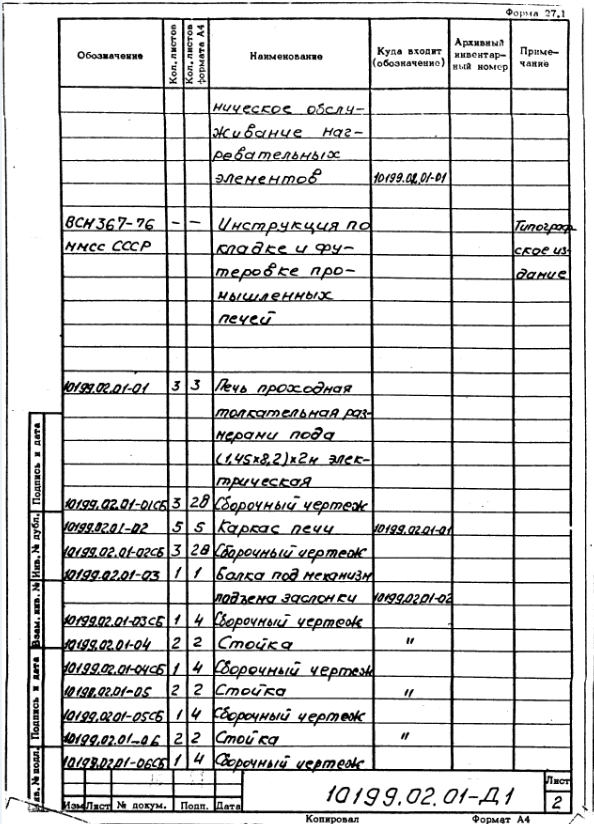 Форма 27.1
Обозначение Кол. листов Кол. листов формата А4 Наименование Куда входит (обозначение) Архивный инвентарный номер Примечание
ническое обслу-
живание наг-
ревательных
элементов 10199.02.01-01
ВСН 367-76 – – Инструкция по Типограф-
ММСС СССР кладке и фу- ское из-
теровке про- дание
мышленных
печей
10199.02.01-01 3 3 Печь проходная
толкательная раз-
мерами пода
(1,45х8,2)х2м элек-
трическая
10199.02.01-01СБ 3 28 Сборочный чертеж
10199.02.01-02 5 5 Каркас печи 10199.02.01-01
10199.02.01-02СБ 3 28 Сборочный чертеж
10199.02.01-03 1 1 Балка под механизм
подъема заслонки 10199.02.01-02
10199.02.01-03СБ 1 4 Сборочный чертеж
10199.02.01-04 2 2 Стойка "
10199.02.01-04СБ 1 4 Сборочный чертеж
10199.02.01-05 2 2 Стойка "
10199.02.01-05СБ 1 4 Сборочный чертеж
10199.02.01-06 2 2 Стойка "
10199.02.01-06СБ 1 4 Сборочный чертеж
Подпись и дата
Инв. № дубл.
Взам. инв. №
Подпись и дата
нв. № подл.
Изм Лист № докум. Подп. Дата
10199.02.01-Д1
Лист
2
Копировал Формат А4